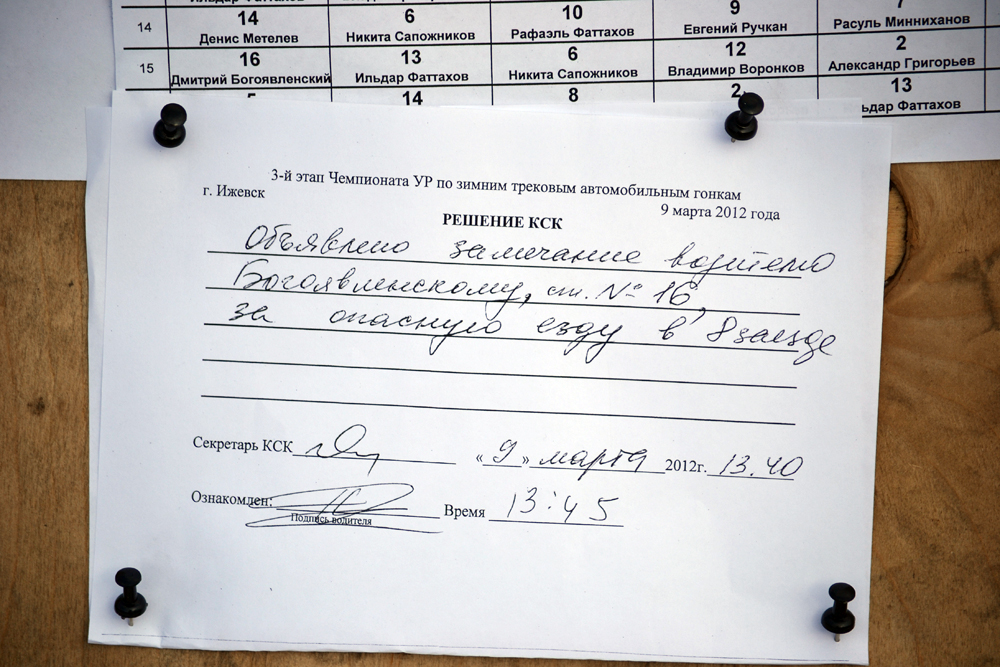 14 14 6 10 9 7
Денис Метелев Никита Сапожников Рафаэль Фаттахов Евгений Ручкан Расуль Минниханов
15 16 13 6 12 2
Дмитрий Богоявленский Ильдар Фаттахов Никита Сапожников Владимир Воронков Александр Григорьев
14 8 2 13
ьдар Фаттахов
3-й этап Чемпионата УР по зимним трековым автомобильным гонкам
г. Ижевск 9 марта 2012 года
РЕШЕНИЕ КСК
Объявлено замечание водителю
Богоявленскому, ст. № 16,
за опасную езду в 8 заезде
Секретарь КСК «9» марта 2012г. 13.40
Ознакомлен: Время 13:45
Подпись водителя